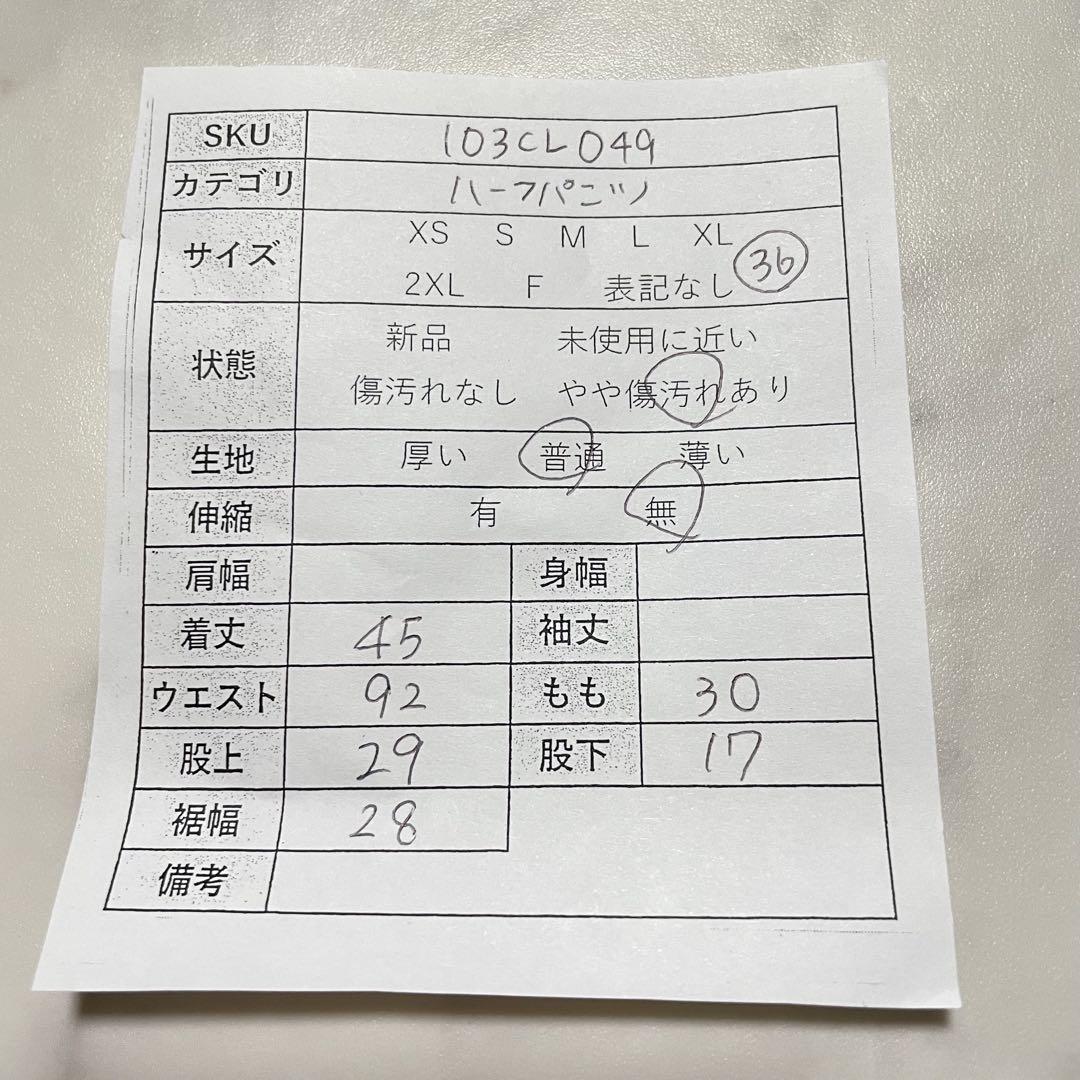 SKU 103CL049
カテゴリ ハーフパンツ
サイズ XS S M L XL
2XL F 表記なし 36
状態 新品 未使用に近い
傷汚れなし やや傷汚れあり
生地 厚い 普通 薄い
伸縮 有 無
肩幅 身幅
着丈 45 袖丈
ウエスト 92 もも 30
股上 29 股下 17
裾幅 28
備考